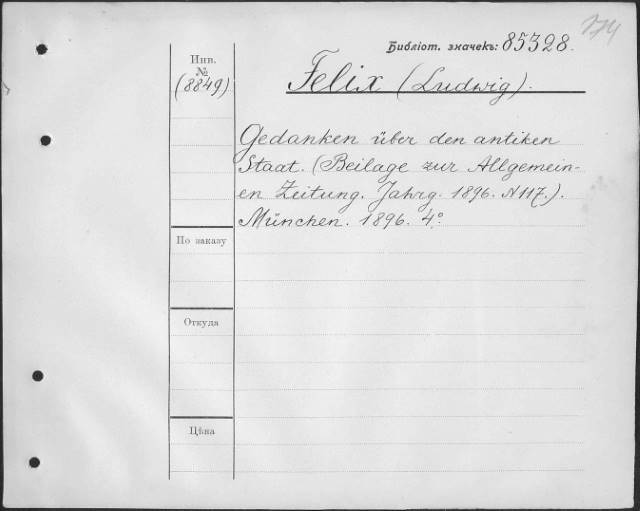 174
Библіот. значекъ: 85328.
Инв.
№
(8849)
Felix (Ludwig).
Gedanken über den antiken
Staat. (Beilage zur Allgemein-
en Zeitung. Jahrg. 1896. N 117.).
München. 1896. 4°.
По заказу
Откуда
Цѣна